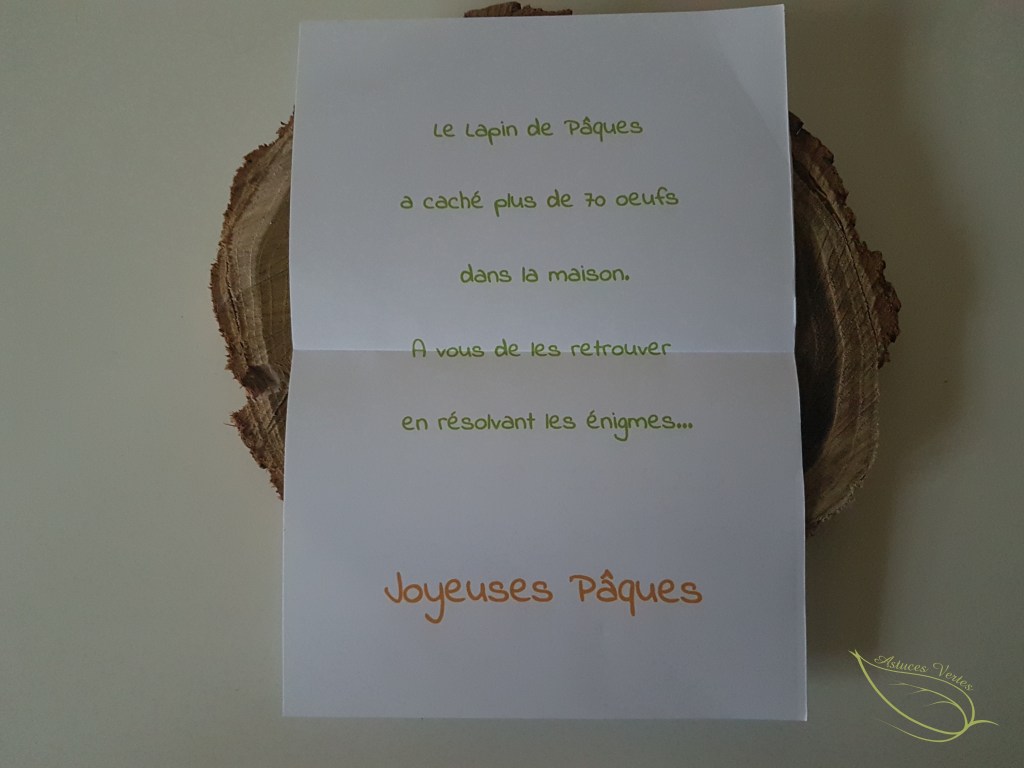 Le Lapin de Pâques
a caché plus de 70 oeufs
dans la maison.
A vous de les retrouver
en résolvant les énigmes...
Joyeuses Pâques
Astuces Vertes